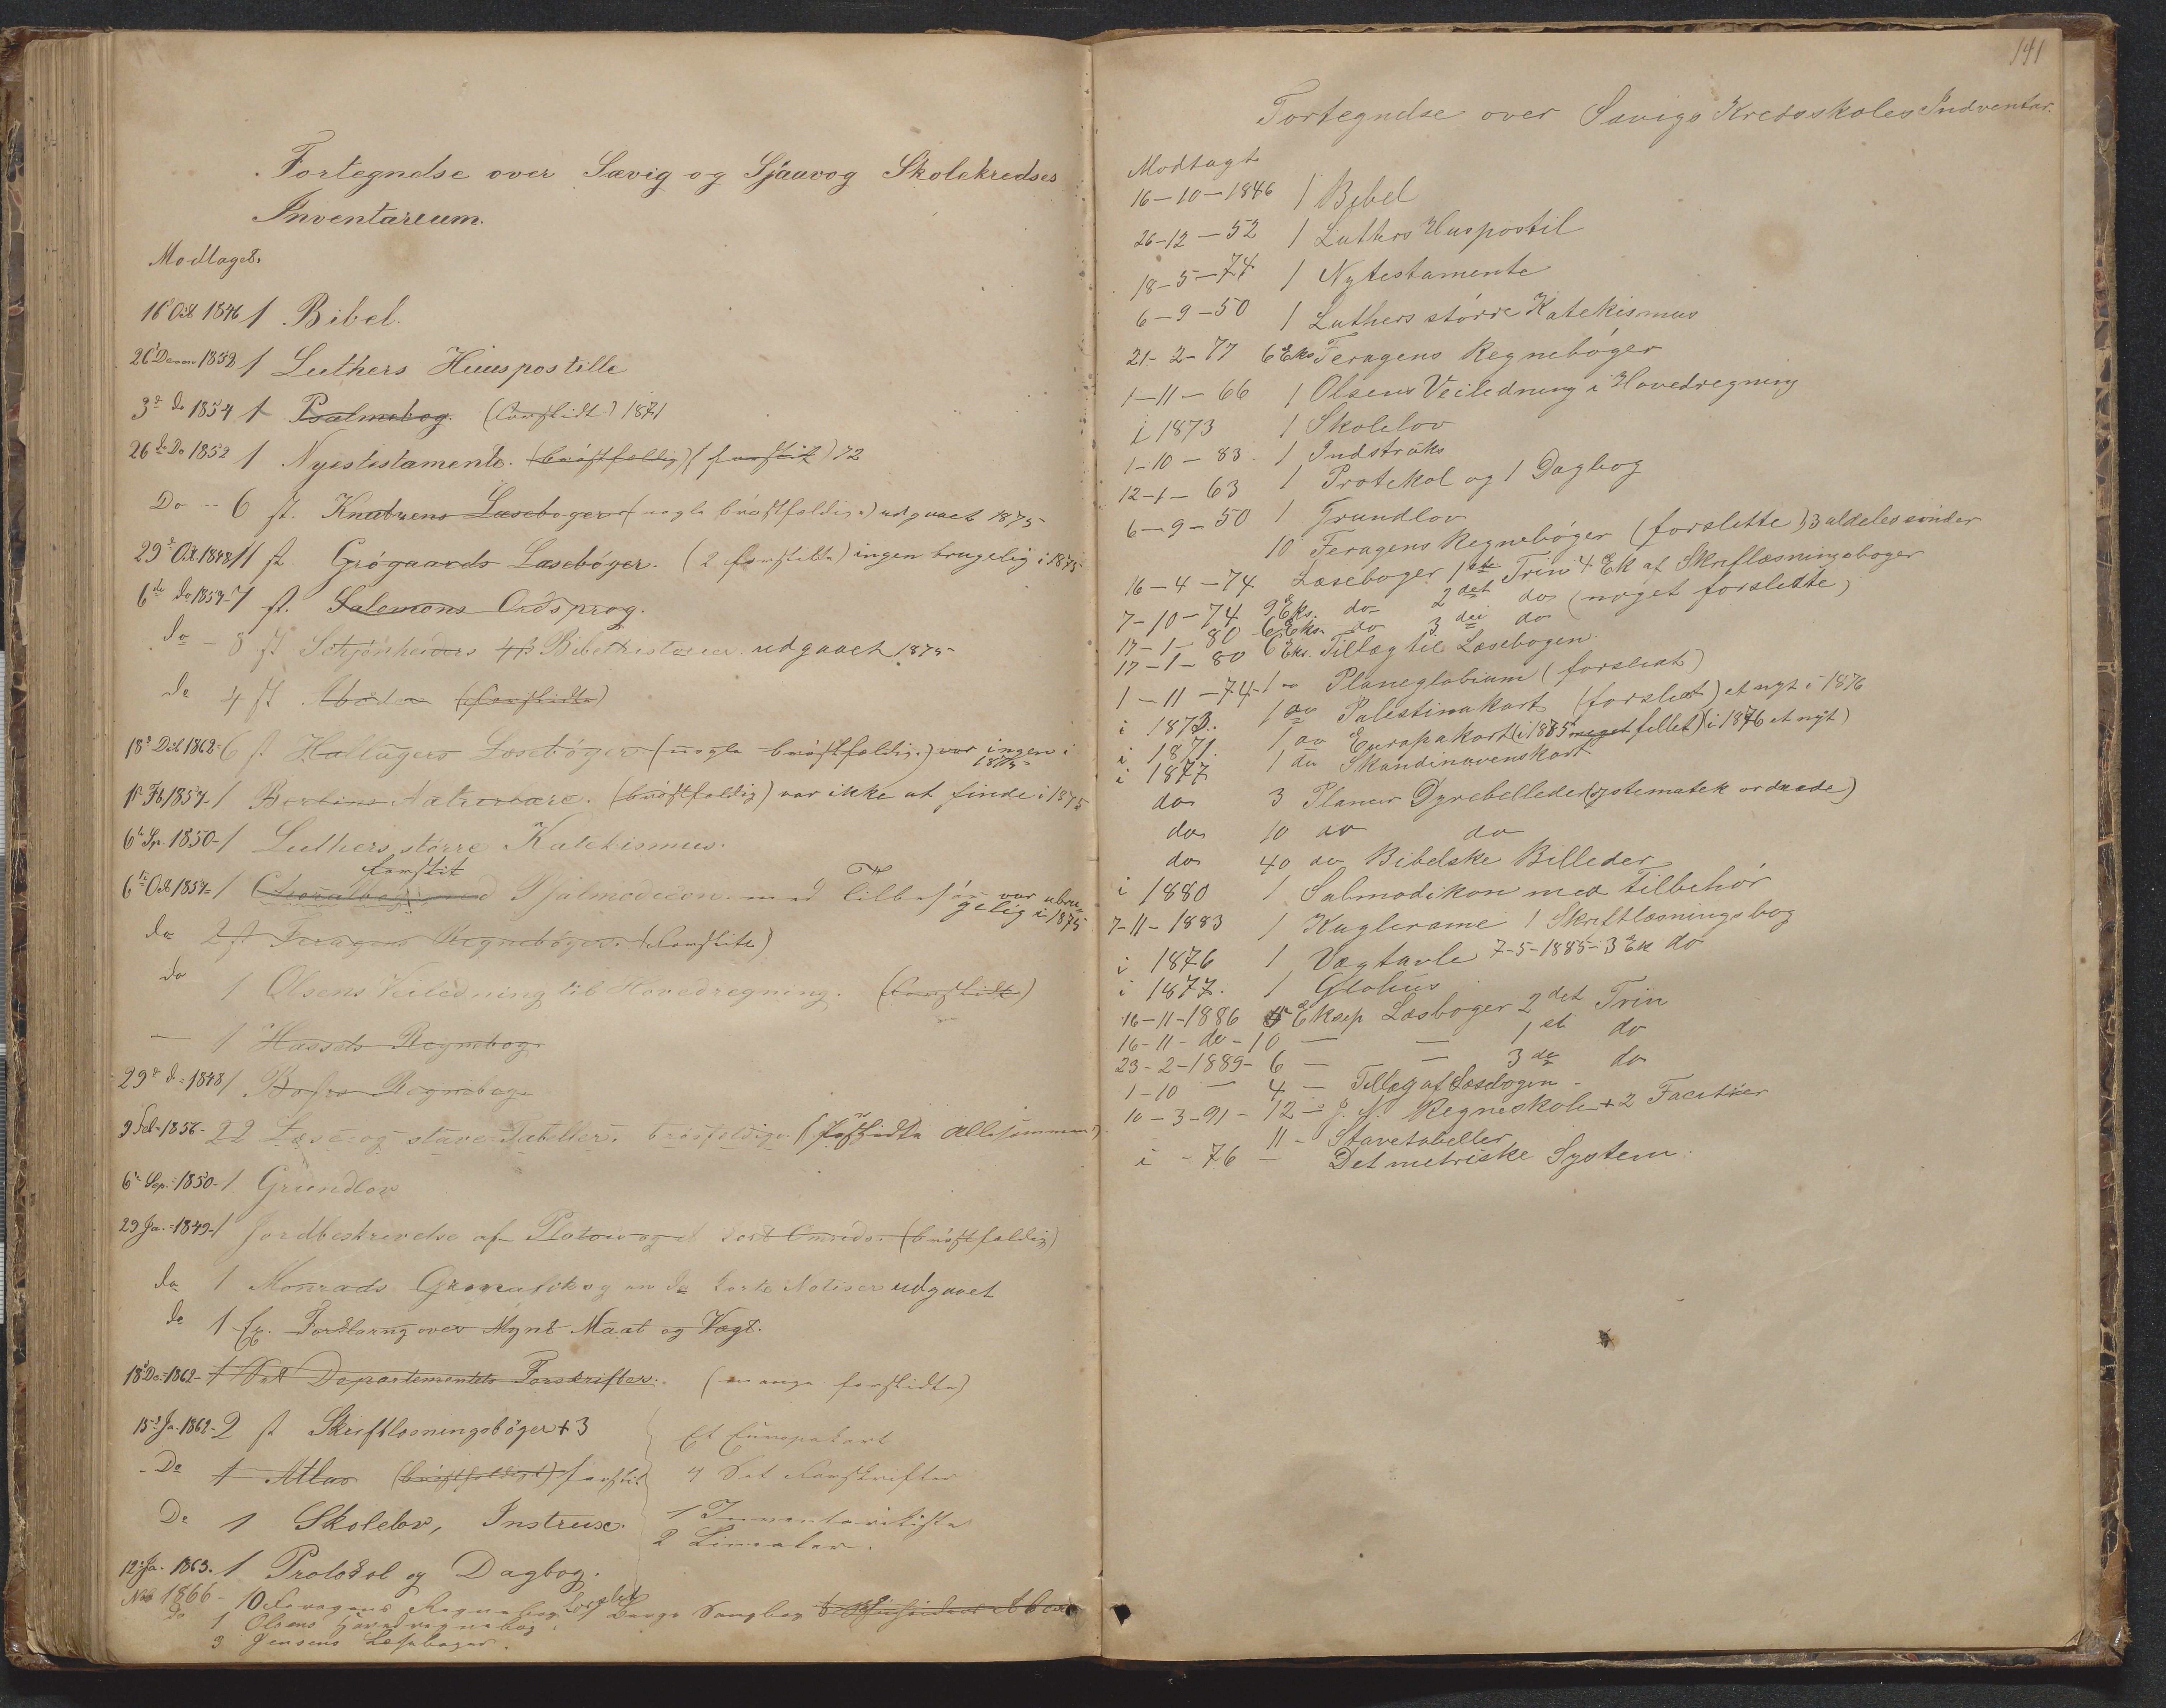 Fortegnelse over Sævig og Sjaavog Skolekredses
Inventareum.
Modtaget.
16d Oct 1846 1 Bibel.
26d Decem 1852 1 Luthers Huuspostille
3d do 1854 1 Psalmebog. (forslidt) 1871
26de Do 1852 1 Nyestestamente. (bröstfeldig) (forslit) 72
Do - 6 st. Knudsens Læsebøger (nogle bröstfeldige) udgaaet 1875
29d Oct. 1848 11 st Grögaards Læsebøger. (2 forslitte) ingen brugelig i 1875
6te do 1854 - 7 st. Salemons Ordsprog.
do - 8 st Schjönheiders Bibelhistorier. udgaaet 1875
do 4 st Abcder (forslidte)
18d Dec 1862 - 6 st Hallagers Læsebøger (nogle bröstfeldig.) var ingen i 1875
1st Fb 1854 - 1 Naturlære. (bröstfeldig) var ikke at finde i 1875
6te Sp. 1850 - 1 Luthers större Katekismus.
forslit
6te Oct 1854 - 1 Choralbog med Psalmodicon med Tilbehör var ubru-
gelig i 1875
do 2 st Feragens Regnebøger. (forslite)
do 1 Olsens Veiledning til Hovedregning. (forslidt)
— 1 Hassels Regnebog.
29d d. 1848 1 Regnebog
9 Feb - 1856 - 22 Læse og stave Tabeller. brösfeldige (forslidte allesammen)
6te Sep. 1850 - 1 Grundlov
29 Ja. - 1849 - 1 Jordbeskrivelse af Platou og et (bröstfeldig)
do 1 Monrads udgaaet
do 1 Ex. Forklaring over Mynt Maat og Vægt.
18d De. - 1862 - 1 Set Departementets Forskrifter. (mange forslidte)
15d Ja. 1862 - 2 st Skriftlæsningsbøger + 3
Et Europakart
- Do 1 Atlas (bröstfeldigt) forslit
4 Set Forskrifter
Do 1 Skolelov, Instrux.
1 Inventarieliste
2 Linealer.
12d Ja. 1863. 1 Protokol og Dagbog.
Nov 1866 - 10 Feragens Regnebog Sangbog
Do 1 Olsens Hovedregnebog.
3 Jensens Læsebøger.
141
Fortegnelse over Sævigs Kredsskoles Indventar.
Modtagt
16-10-1846 1 Bibel
26-12-52 1 Luthers Huspostil
18-5-74 1 Nytestamente
6-9-50 1 Luthers större Katekismus
21-2-77 6 Eks Feragens Regnebøger
1-11-66 1 Olsens Veiledning i Hovedregning
i 1873 1 Skolelov
1-10-83. 1 Indstruks
12-1-63 1 Protekol og 1 Dagbog
6-9-50 1 Grundlov
10 Feragens Regnebøger (forslette) 3 aldeles sönder
16-4-74 Læsebøger 1ste Trin 4 Ek af Skriflæsningsbøger
7-10-74 9 Eks. do 2det do (noget forslette)
17-1-80 6 Eks. do 3die do
17-1-80 6 Eks. Tillæg til Læsebogen.
1-11-74 - 1 Planeglobium (forslidt)
i 1873. 1 do Palestinakart (forslidt) et nyt i 1876
i 1871. 1 do Europakart (i 1875 meget fillet) (i 1876 et nyt)
i 1877 1 do Skandinavenskart
do 3 Plancer Dyrebelleder (systematek ordnede)
do 10 do do
do 40 do Bibelske Billeder
i 1880 1 Salmodikon med tilbehör
7-11-1883 1 Kuglerame 1 Skriftlæsningsbog
i 1876 1 Vægtavle 7-5-1885 - 3 Ek do
i 1877. 1 Globus
16-11-1886 Eksep Læsbøger 2det Trin
16-11-do-10 — — 1st do
23-2-1889- 6 — — 3de do
1-10 — 4 — Tillæg af Læsebogen -
10-3-91 - 12 - J. N. Regneskole + 2 Facitter
11 - Stavetabeller
i - 76 — Det metriske System.